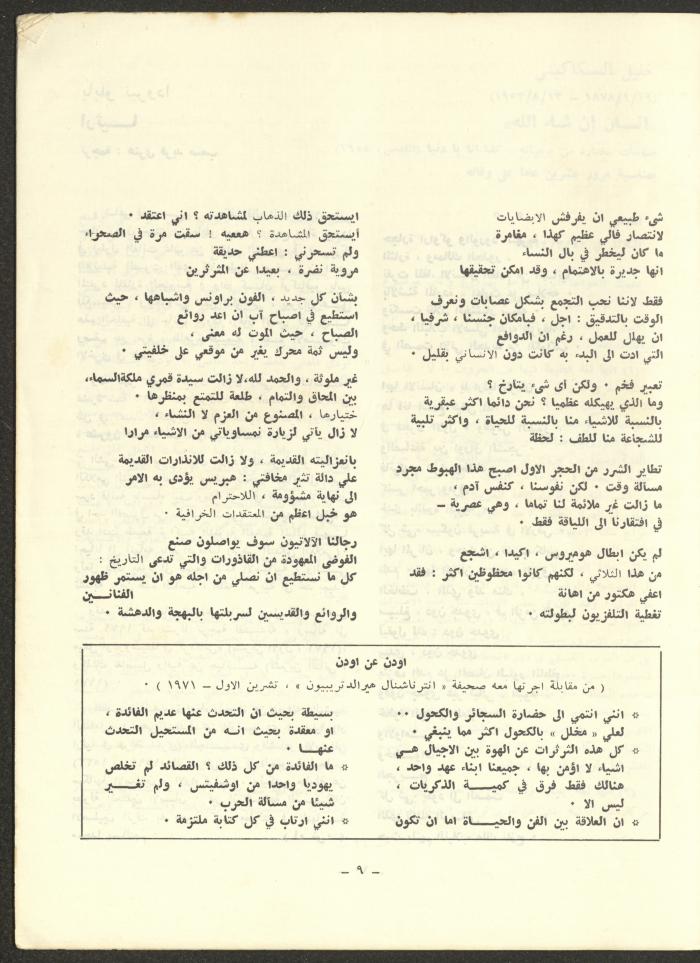 شيء طبيعي ان يفرفش الابضايات
لانتصار فالي عظيم كهذا ، مغامرة
ما كان ليخطر في بال النساء
انها جديرة بالاهتمام ، وقد امكن تحقيقها
فقط لاننا نحب التجمع بشكل عصابات ونعرف
الوقت بالتدقيق : اجل ، فبامكان جنسنا ، شرفيا ،
ان يهلل للعمل ، رغم ان الدوافع
التي ادت الى البدء به كانت دون الانساني بقليل ٠
تعبير فخم ٠ ولكن اى شىء يتارخ ؟
وما الذي يهيكله عظميا ؟ نحن دائما اكثر عبقرية
بالنسبة للاشياء منا بالنسبة للحياة ، واكثر تلبية
للشجاعة منا للطف : لحظة
تطاير الشرر من الحجر الاول اصبح هذا الهبوط مجرد
مسألة وقت ٠ لكن نفوسنا ، كنفس آدم ،
ما زالت غير ملائمة لنا تماما ، وهي عصرية ــ
في افتقارنا الى اللياقة فقط ٠
لم يكن ابطال هوميروس ، اكيدا ، اشجع
من هذا الثلاثي ، لكنهم كانوا محظوظين اكثر : فقد
اعفي هكتور من اهانة
تغطية التلفزيون لبطولته ٠
ايستحق ذلك الذهاب لمشاهدته ؟ اني اعتقد ٠
ايستحق المشاهدة ؟ هععيه ! سقت مرة في الصحراء
ولم تسحرني : اعطني حديقة
مروية نضرة ، بعيدا عن المثرثرين
بشان كل جديد ، الفون براونس واشباهها ، حيث
استطيع في اصباح آب ان اعد روائع
الصباح ، حيث الموت له معنى ،
وليس ثمة محرك يغير من موقعي على خلفيتي ٠
غير ملوثة ، والحمد لله،لا زالت سيدة قمري ملكةالسماء،
بين المحاق والتمام ، طلعة للتمتع بمنظرها ٠
ختيارها ، المصنوع من العزم لا النشاء ،
لا زال يأتي لزيارة نمساوياتي من الاشياء مرارا
بانعزاليته القديمة ، ولا زالت للانذارات القديمة
علي دالة تثير مخافتي : هبريس يؤدى به الامر
الى نهاية مشؤومة ، اللاحترام
هو خبل اعظم من المعتقدات الخرافية ٠
رجالنا الآلاتيون سوف يواصلون صنع
الفوضى المعهودة من القاذورات والتي تدعى التاريخ :
كل ما نستطيع ان نصلي من اجله هو ان يستمر ظهور
الفنانــين
والروائع والقديسين لسربلتها بالبهجة والدهشة ٠
اودن عن اودن
( من مقابلة اجرتها معه صحيفة « انترناشنال هيرالدتريبيون » ، تشرين الاول ــ ١٩٧١ ) ٠
* انني انتمي الى حضارة السجائر والكحول ٠٠
لعلي « مخلل » بالكحول اكثر مما ينبغي ٠
* كل هذه الثرثرات عن الهوة بين الاجيال هــي
اشياء لا اؤمن بها ، جميعنا ابناء عهد واحد ،
هنالك فقط فرق في كميــة الذكريات ،
ليس الا ٠
* ان العلاقة بين الفن والحيــاة اما ان تكون
بسيطة بحيث ان التحدث عنها عديم الفائدة ،
او معقدة بحيث انــه من المستحيل التحدث
عنهــا ٠
* ما الفائدة من كل ذلك ؟ القصائد لم تخلص
يهوديا واحدا من اوشفيتس ، ولم تغــير
شيئا من مسألة الحرب ٠
* انني ارتاب في كل كتابة ملتزمة ٠
ــ ٩ ــ